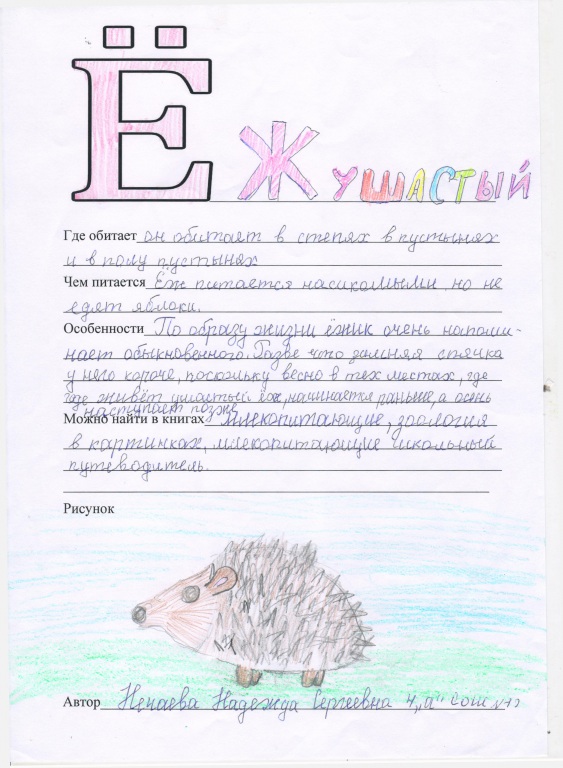 Ё Ж УШАСТЫЙ
Где обитает он обитает в степях в пустынях
и в полу пустынях
Чем питается Ёж питается насикомыми но не
едят яблоки.
Особенности По образу жизни ёжик очень напоми-
нает обыкновенного. Разве что зимняя спячка
у него короче, поскольку весно в тех местах, где
где живёт ушастый ёж, начинается раньше, а осень
наступает позже
Можно найти в книгах млекопитающие, зоология
в картинках, млекопитающие школьный
путеводитель.
Рисунок
Автор Нечаева Надежда Сергеевна 4 "а" сош